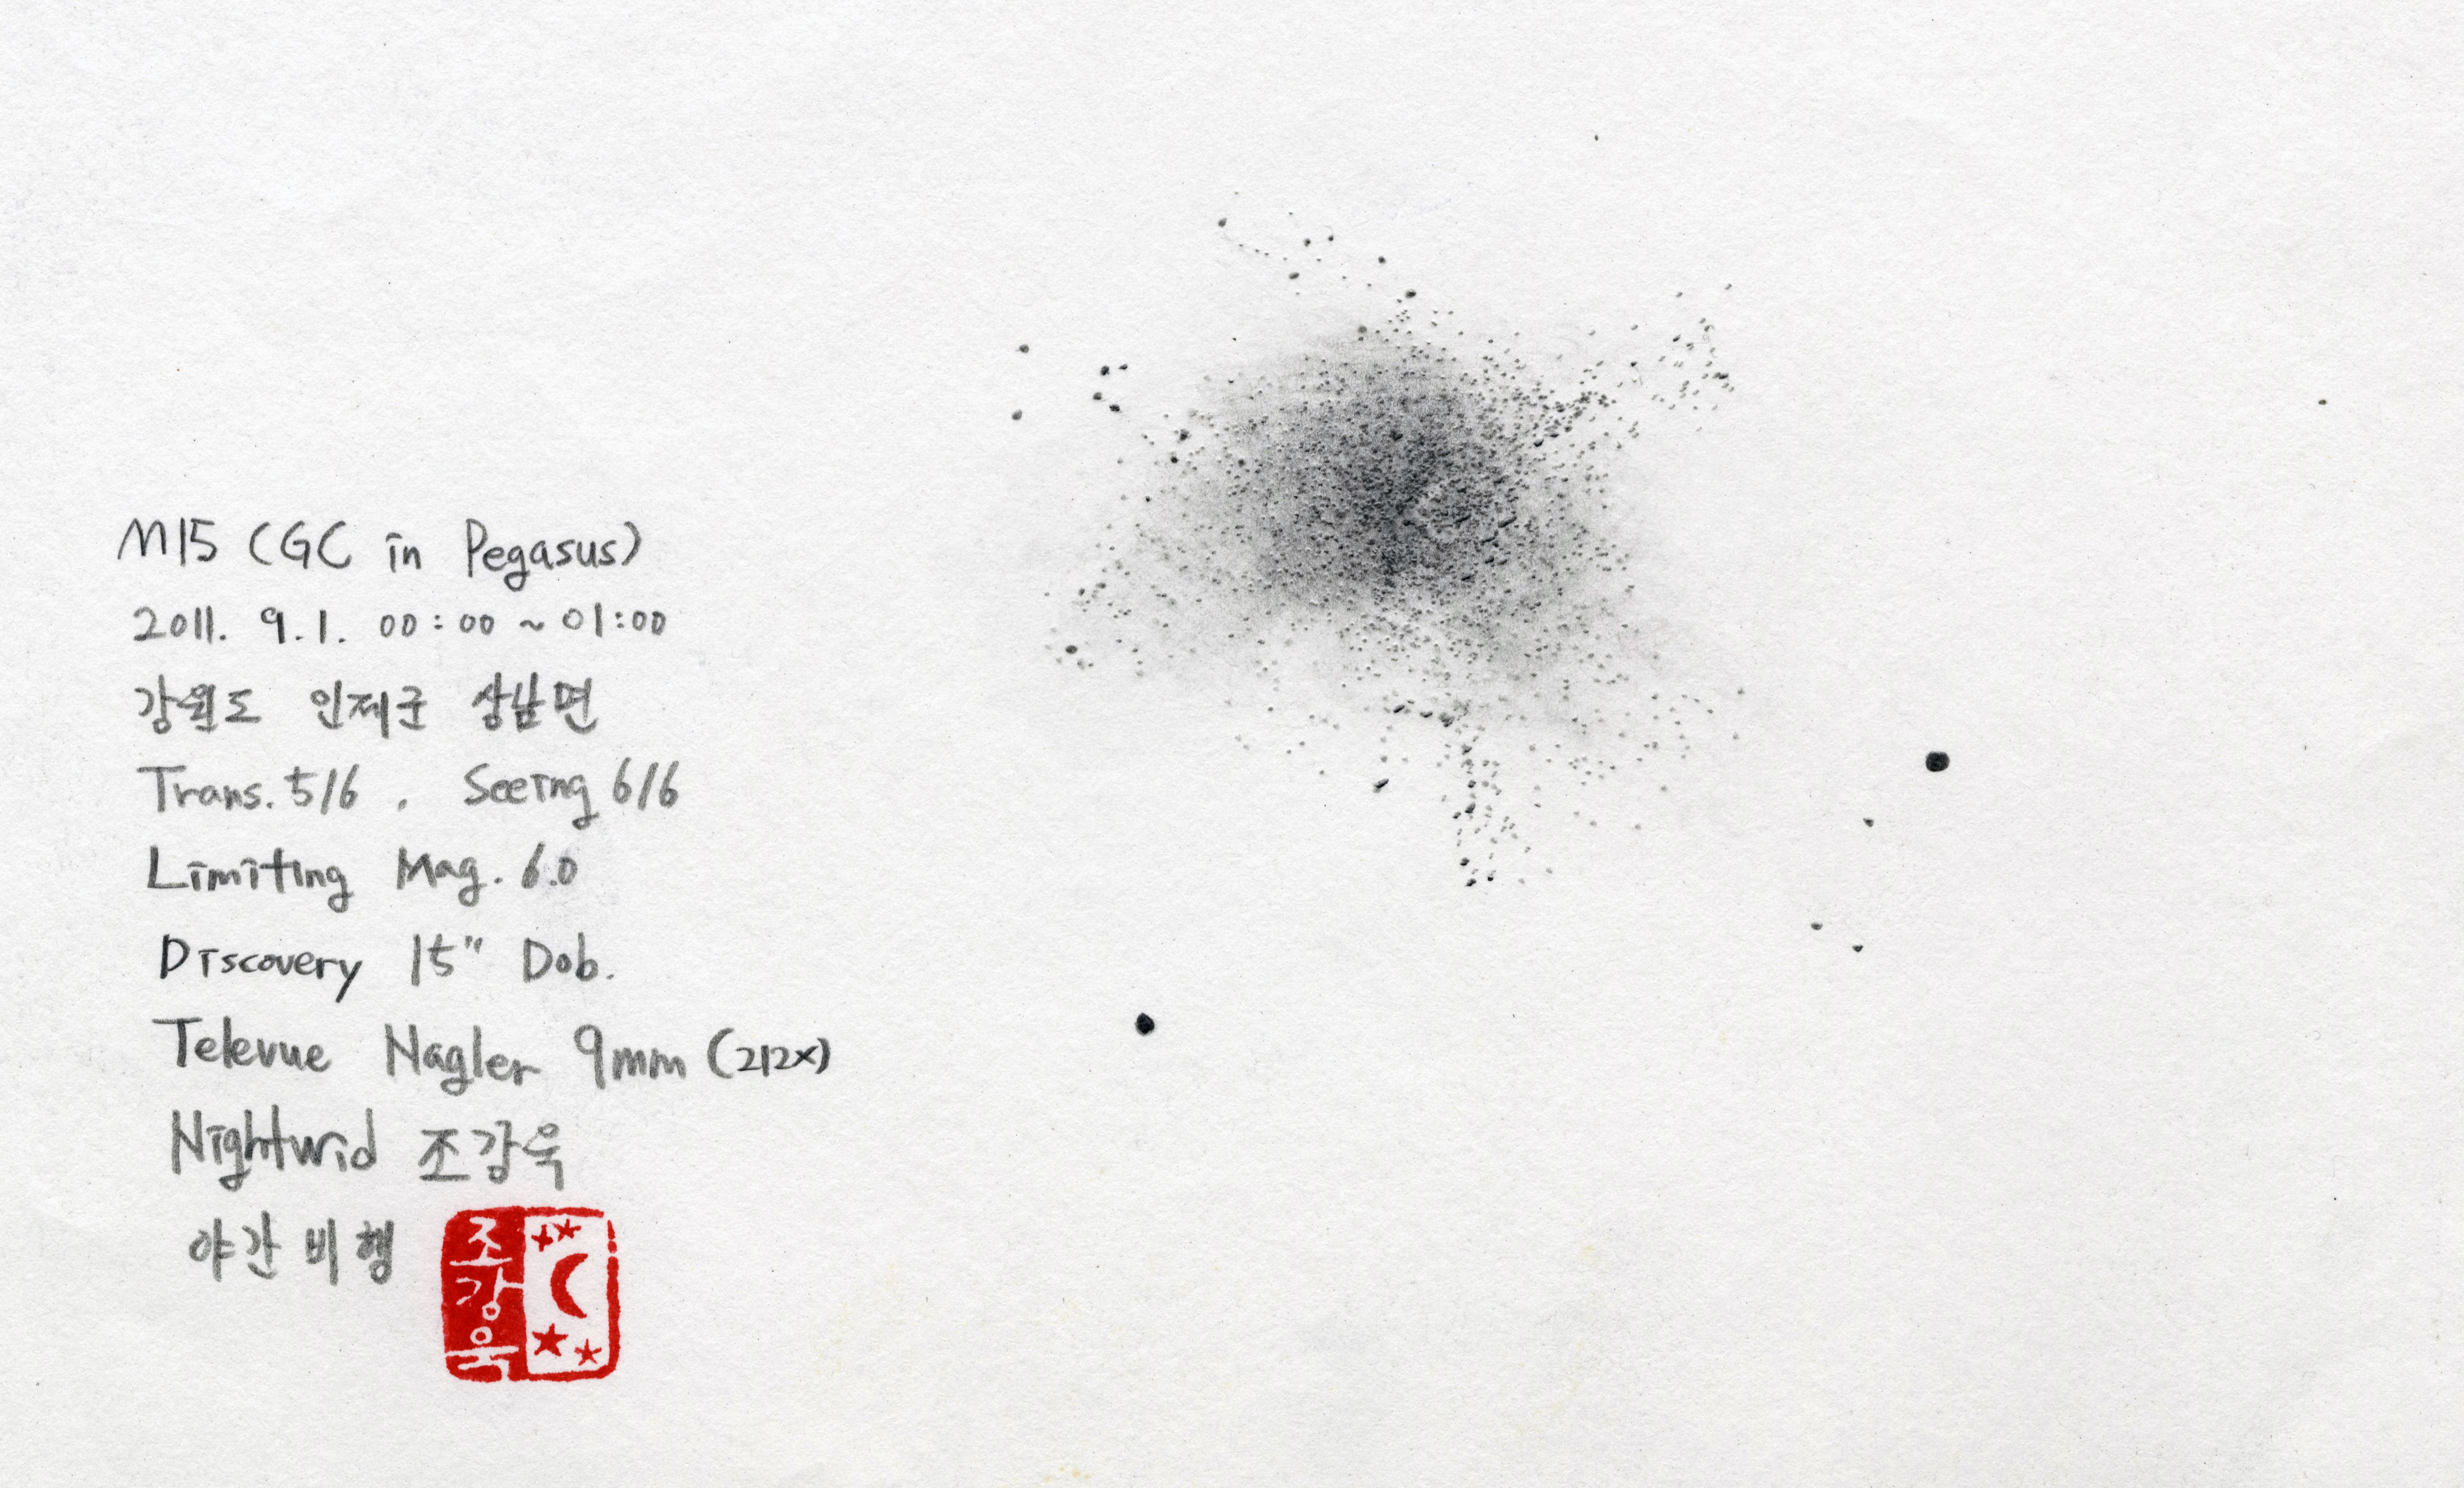 M15 (GC in Pegasus)
2011. 9.1. 00:00 ~ 01:00
강원도 인제군 상남면
Trans. 5/6 , Seeing 6/6
Limiting Mag. 6.0
Discovery 15" Dob.
Televue Nagler 9mm (212x)
Nightwid 조강욱
야간비행
조강욱